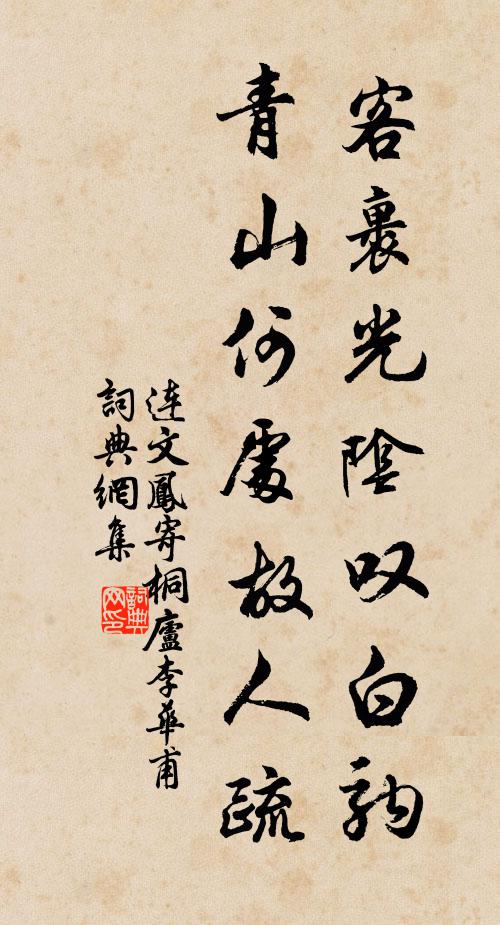 客裏光陰叹白駒
青山何處故人疏
連文鳳寄桐廬李華甫
詞典網集
詞典
网印